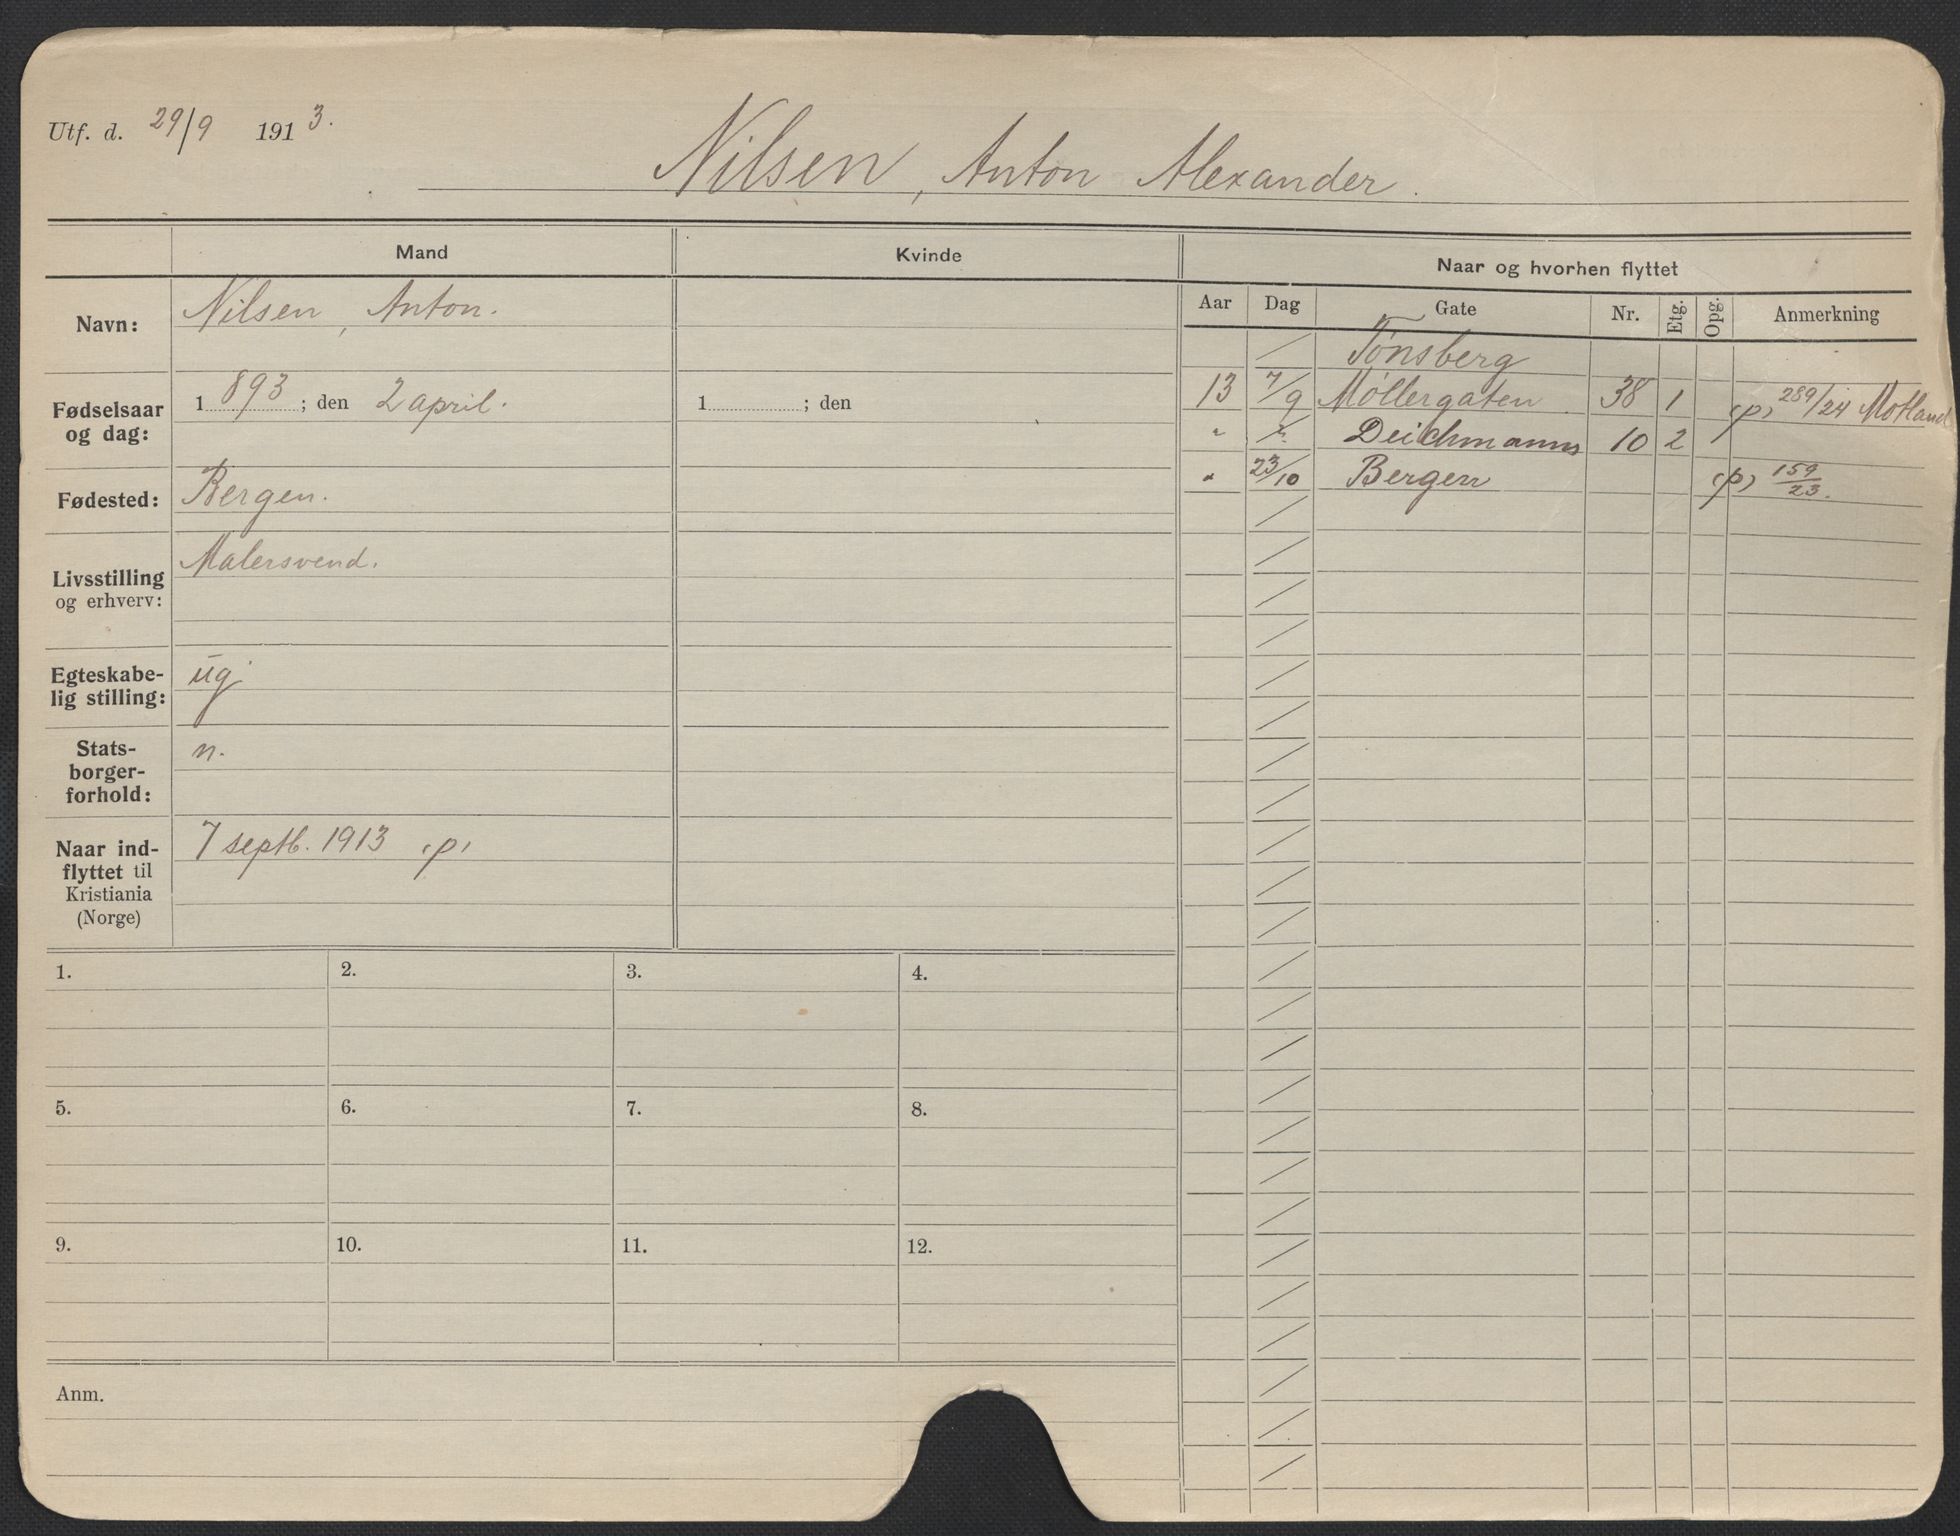 Utf. d. 29/9 1913.
Nilsen, Anton Alexander.
Mand
Kvinde
Naar og hvorhen flyttet
Aar Dag Gate Nr. Etg. Opg. Anmerkning
Navn: Nilsen, Anton.
Fødselsaar og dag: 1893; den 2 april.
1 ; den
Fødested: Bergen.
Livsstilling og erhverv: Malersvend.
Egteskabe-
lig stilling: ug
Stats-
borger-
forhold: n.
Naar ind-
flyttet til
Kristiania
(Norge) 7 septb. 1913 (p)
/ Tønsberg
13 7/9 Møllergaten 38 1 (p) 289/24 Motland
" " Deichmanns 10 2
" 23/10 Bergen (p) 159/23.
1. 2. 3. 4.
5. 6. 7. 8.
9. 10. 11. 12.
Anm.